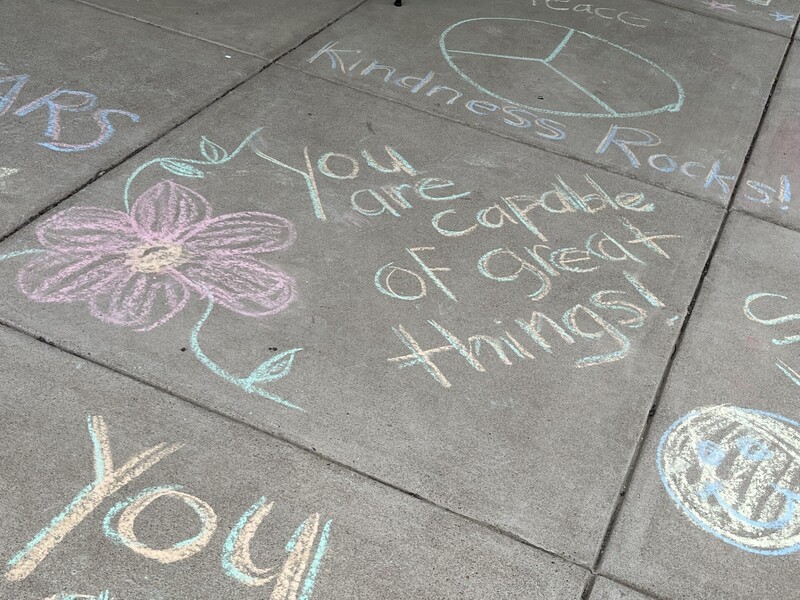 Peace
Kindness Rocks!
ARS
You
are capable
of great
things!
You